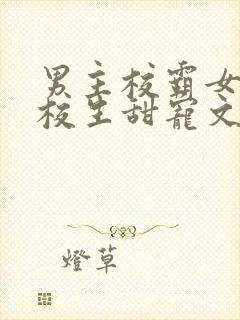 男主校霸女
校生甜寵文
燈草